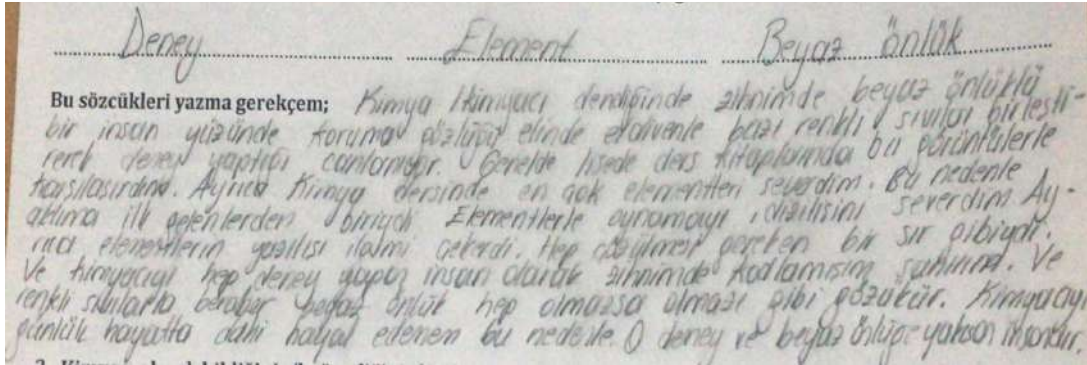 Deney Element Beyaz önlük
Bu sözcükleri yazma gerekçem; Kimya kimyacı dendiğinde zihnimde beyaz önlüklü
bir insan yüzünde koruma gözlüğü elinde eldivenle bazı renkli sıvıları birleşti-
rerek deney yaptığı canlanıyor. Genelde lisede ders kitaplarında bu görüntülerle
karşılaşırdım. Ayrıca kimya dersinde en çok elementleri severdim. Bu nedenle
aklıma ilk gelenlerden biriydi Elementlerle oynamayı, dizilişini severdim Ay-
rıca elementlerin yazılışı ilgimi çekerdi. Hep çözülmesi gereken bir sır gibiydi.
Ve kimyacıyı hep deney yapan insan olarak zihnimde kodlamışım sanırım. Ve
renkli sıvılarla beraber beyaz önlük hep olmazsa olmazı gibi gözükür. Kimyacıyı
günlük hayatta dahi hayal edemem bu nedenle. O deney ve beyaz önlüğe yakışan insandır.